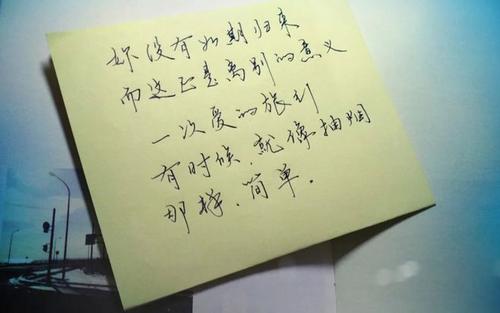 妳没有如期归来
而这正是离别的意义
一次爱的旅行
有时候、就像抽烟
那样、简单.